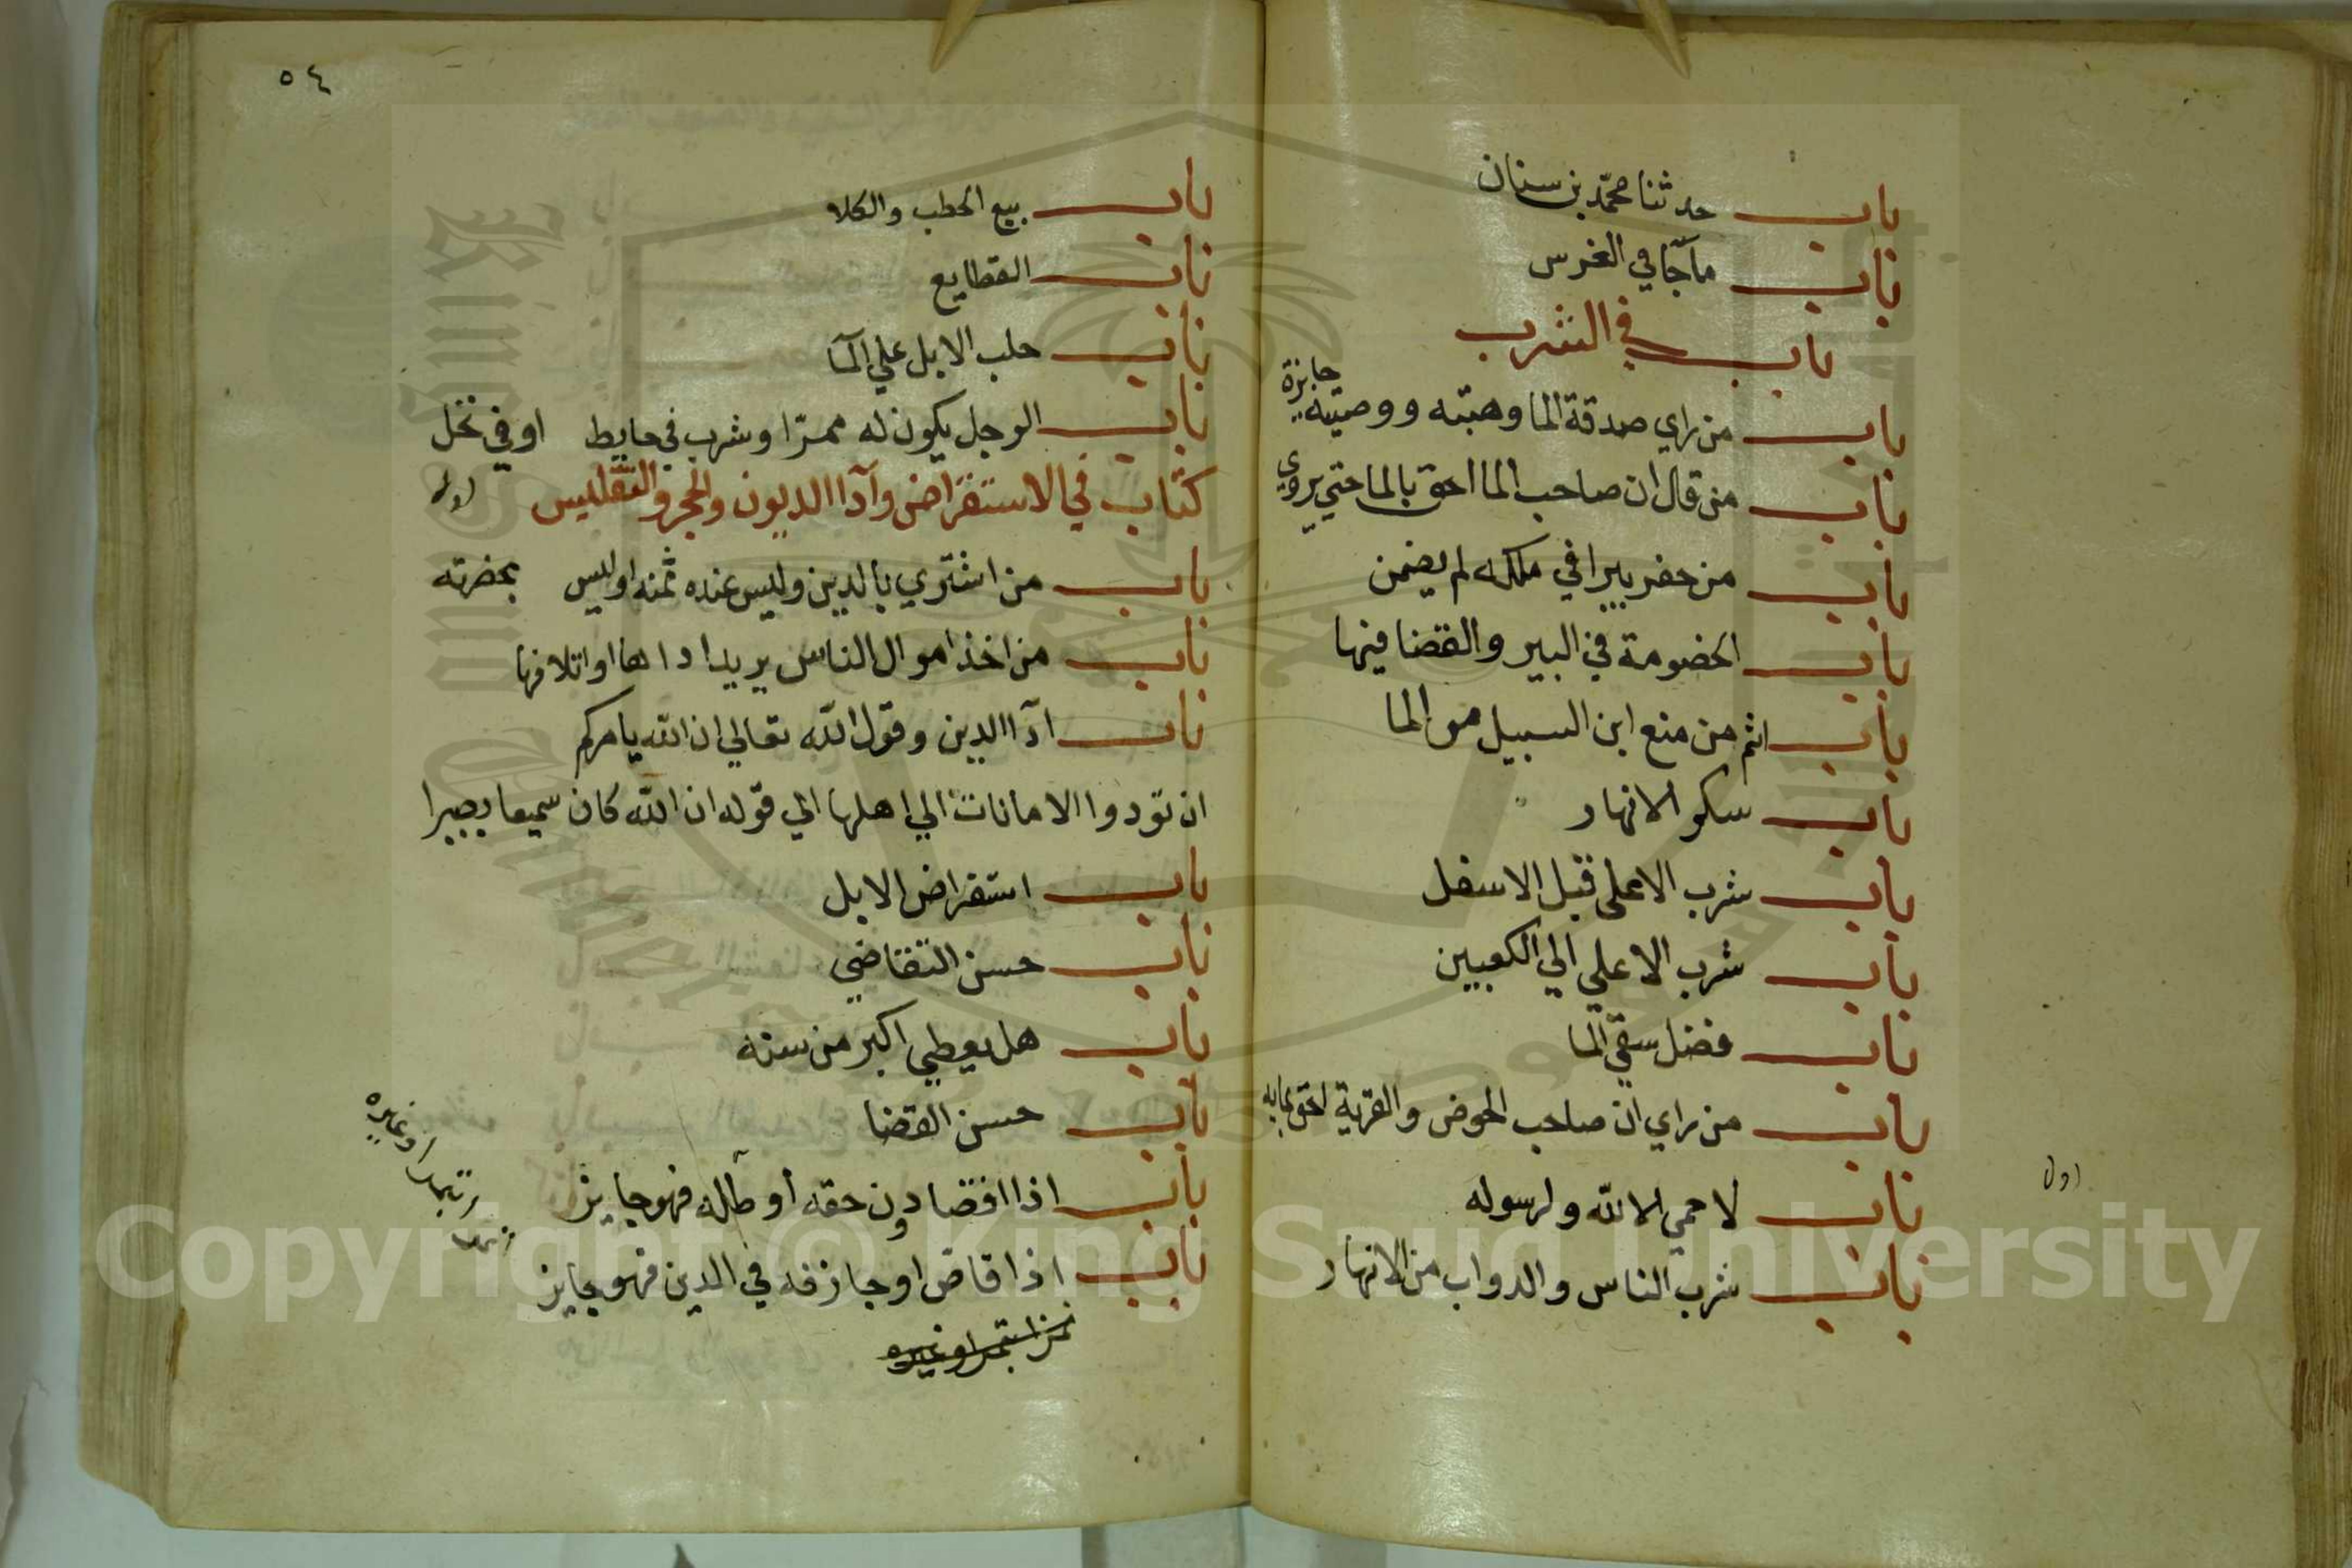 باب حدثنا محمد بن سنان
باب ما جا في الغرس
باب في الشرب
باب من راي صدقة الما وهبته ووصيته جايزة
باب من قال ان صاحب الما احق بالما حتي يروي
باب من حفر بيرا في ملكه لم يضمن
باب الخصومة في البير والقضا فيها
باب اثم من منع ابن السبيل من الما
باب سكر الانهار
باب شرب الاعلي قبل الاسفل
باب شرب الاعلي الي الكعبين
باب فضل سقي الما
باب من راي ان صاحب الحوض والقربة احق بمايه
باب لا حمي الا لله ولرسوله
باب شرب الناس والدواب من الانهار
٥٤
باب بيع الحطب والكلا
باب القطايع
باب حلب الابل علي الما
باب الرجل يكون له ممرا وشرب في حايط او في نخل
كتاب في الاستقراض وآدا الديون والحجر والتفليس
باب من اشتري بالدين وليس عنده ثمنه او ليس بحضرته
باب من اخذ اموال الناس يريد اداها او اتلافها
باب ادآ الدين وقول الله تعالي ان الله يامركم
ان تودوا الامانات الي اهلها الي قوله ان الله كان سميعا بصيرا
باب استقراض الابل
باب حسن التقاضي
باب هل يعطي اكبر من سنه
باب حسن القضا
باب اذا اقضا دون حقه أو حلله فهو جايز
باب اذا قاض او جازفه في الدين فهو جايز
تمرا بتمر او غيره
Copyright © King Saud University